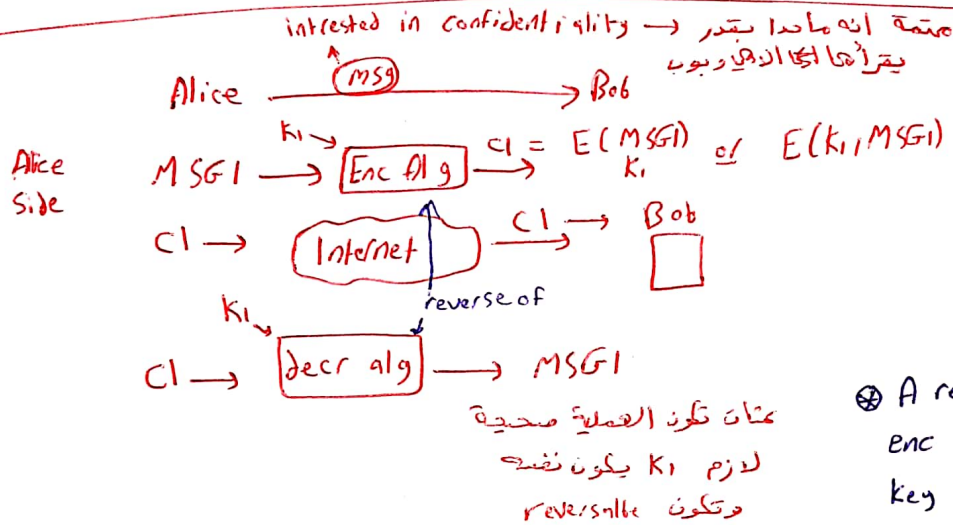 intrested in confidentiality → مهتمة انه ماحدا بقدر
يقرأها الا هي وبوب
Alice MSG → Bob
Alice Side
MSG1 → K1 → Enc Alg → C1 = E(MSG1) K1 or E(K1, MSG1)
C1 → Internet C1 → Bob
reverse of
K1
C1 → decr alg → MSG1
عشان تكون العملية صحيحة
لازم K1 يكون نفسه
وتكون reversalbe
⊛ A re
enc
key